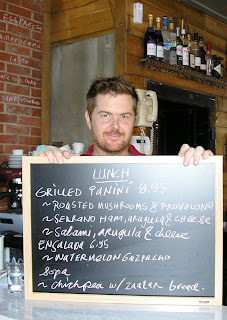 ESPRESSO
americano
LUNCH
GRILLED PANINI 8.95
~ ROASTED MUSHROOMS & PROVOLONE
~ SERRANO HAM, ARUGULA & CHEESE
~ SALAMI, ARUGULA & CHEESE
ENSALADA 6.95
~ WATERMELON GAZPACHO
SOPA
~ chickpea w/ zaatar bread.